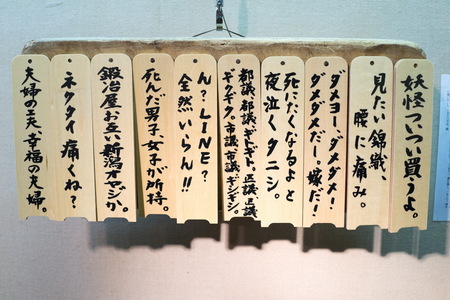 妖怪ついつい買うよ。
見たい錦織、
腰に痛み。
ダメヨー、ダメダメー!
ダメダメだー。嫁だ!
死にたくなるよと
夜泣くタニシ。
都議、都議、ギトギト。区議、区議、
ギクギク。市議、市議、ギシギシ。
ん?LINE?
全然いらん!!
死んだ男子女子が所持。
鍛冶屋お互い新潟オヤジか。
ネクタイ痛くね?
夫婦の工夫幸福の夫婦。